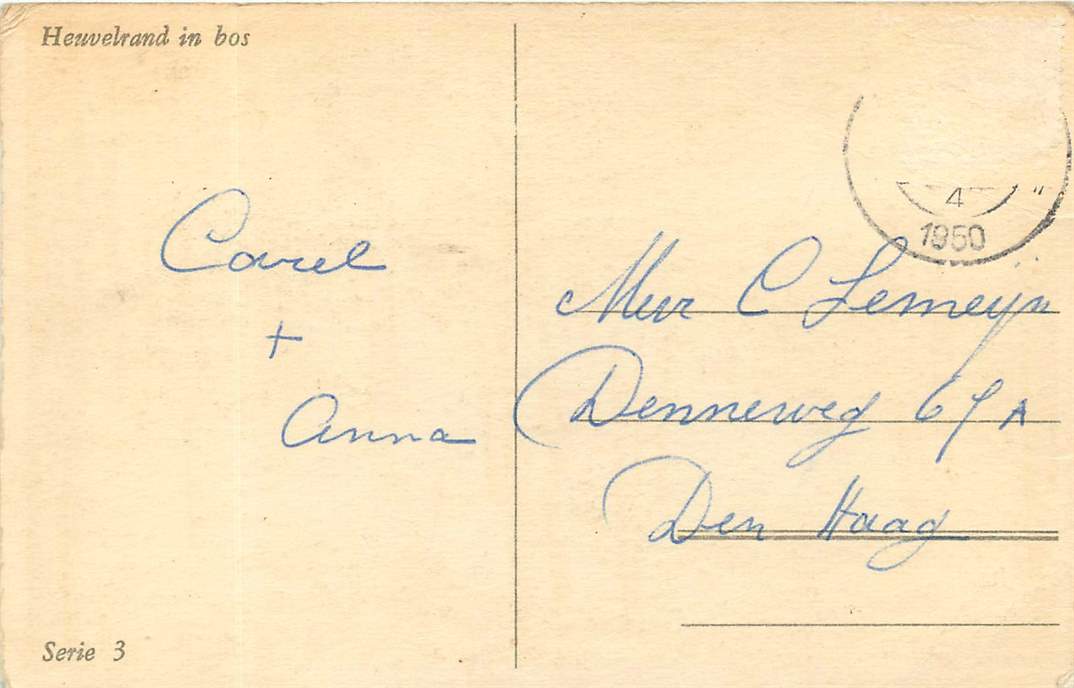 Heuvelrand in bos
4
1950
Carel
+
Anna
Mevr C Lemeyn
Denneweg 69 A
Den Haag
Serie 3